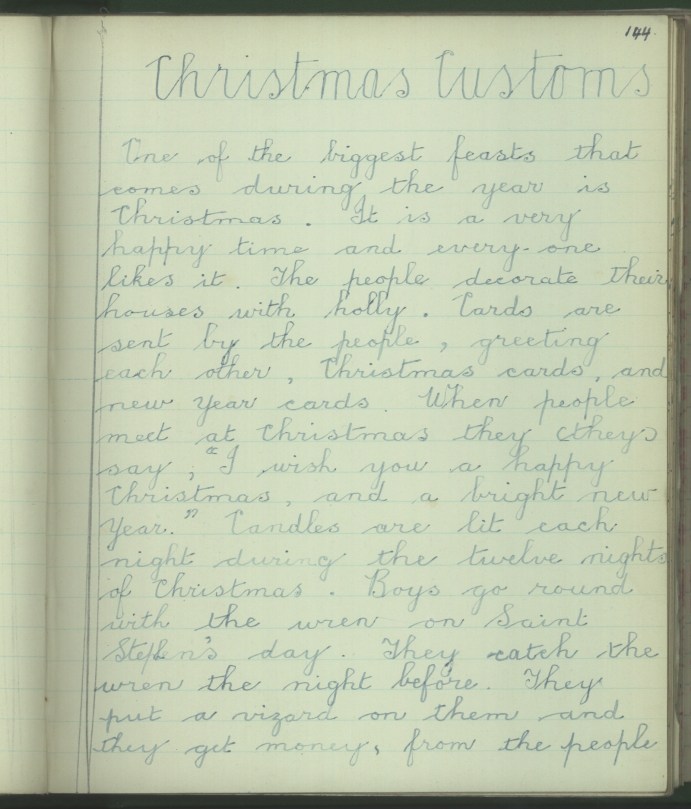 144.
Christmas Customs
One of the biggest feasts that
comes during the year is
Christmas. It is a very
happy time and every-one
likes it. The people decorate their
houses with holly. Cards are
sent by the people, greeting
each other, Christmas cards, and
new year cards. When people
meet at Christmas they (they)
say, "I wish you a happy
Christmas, and a bright new
year." Candles are lit each
night during the twelve nights
of Christmas. Boys go round
with the wren on Saint
Stephen's day. They catch the
wren the night before. They
put a vizard on them and
they get money, from the people